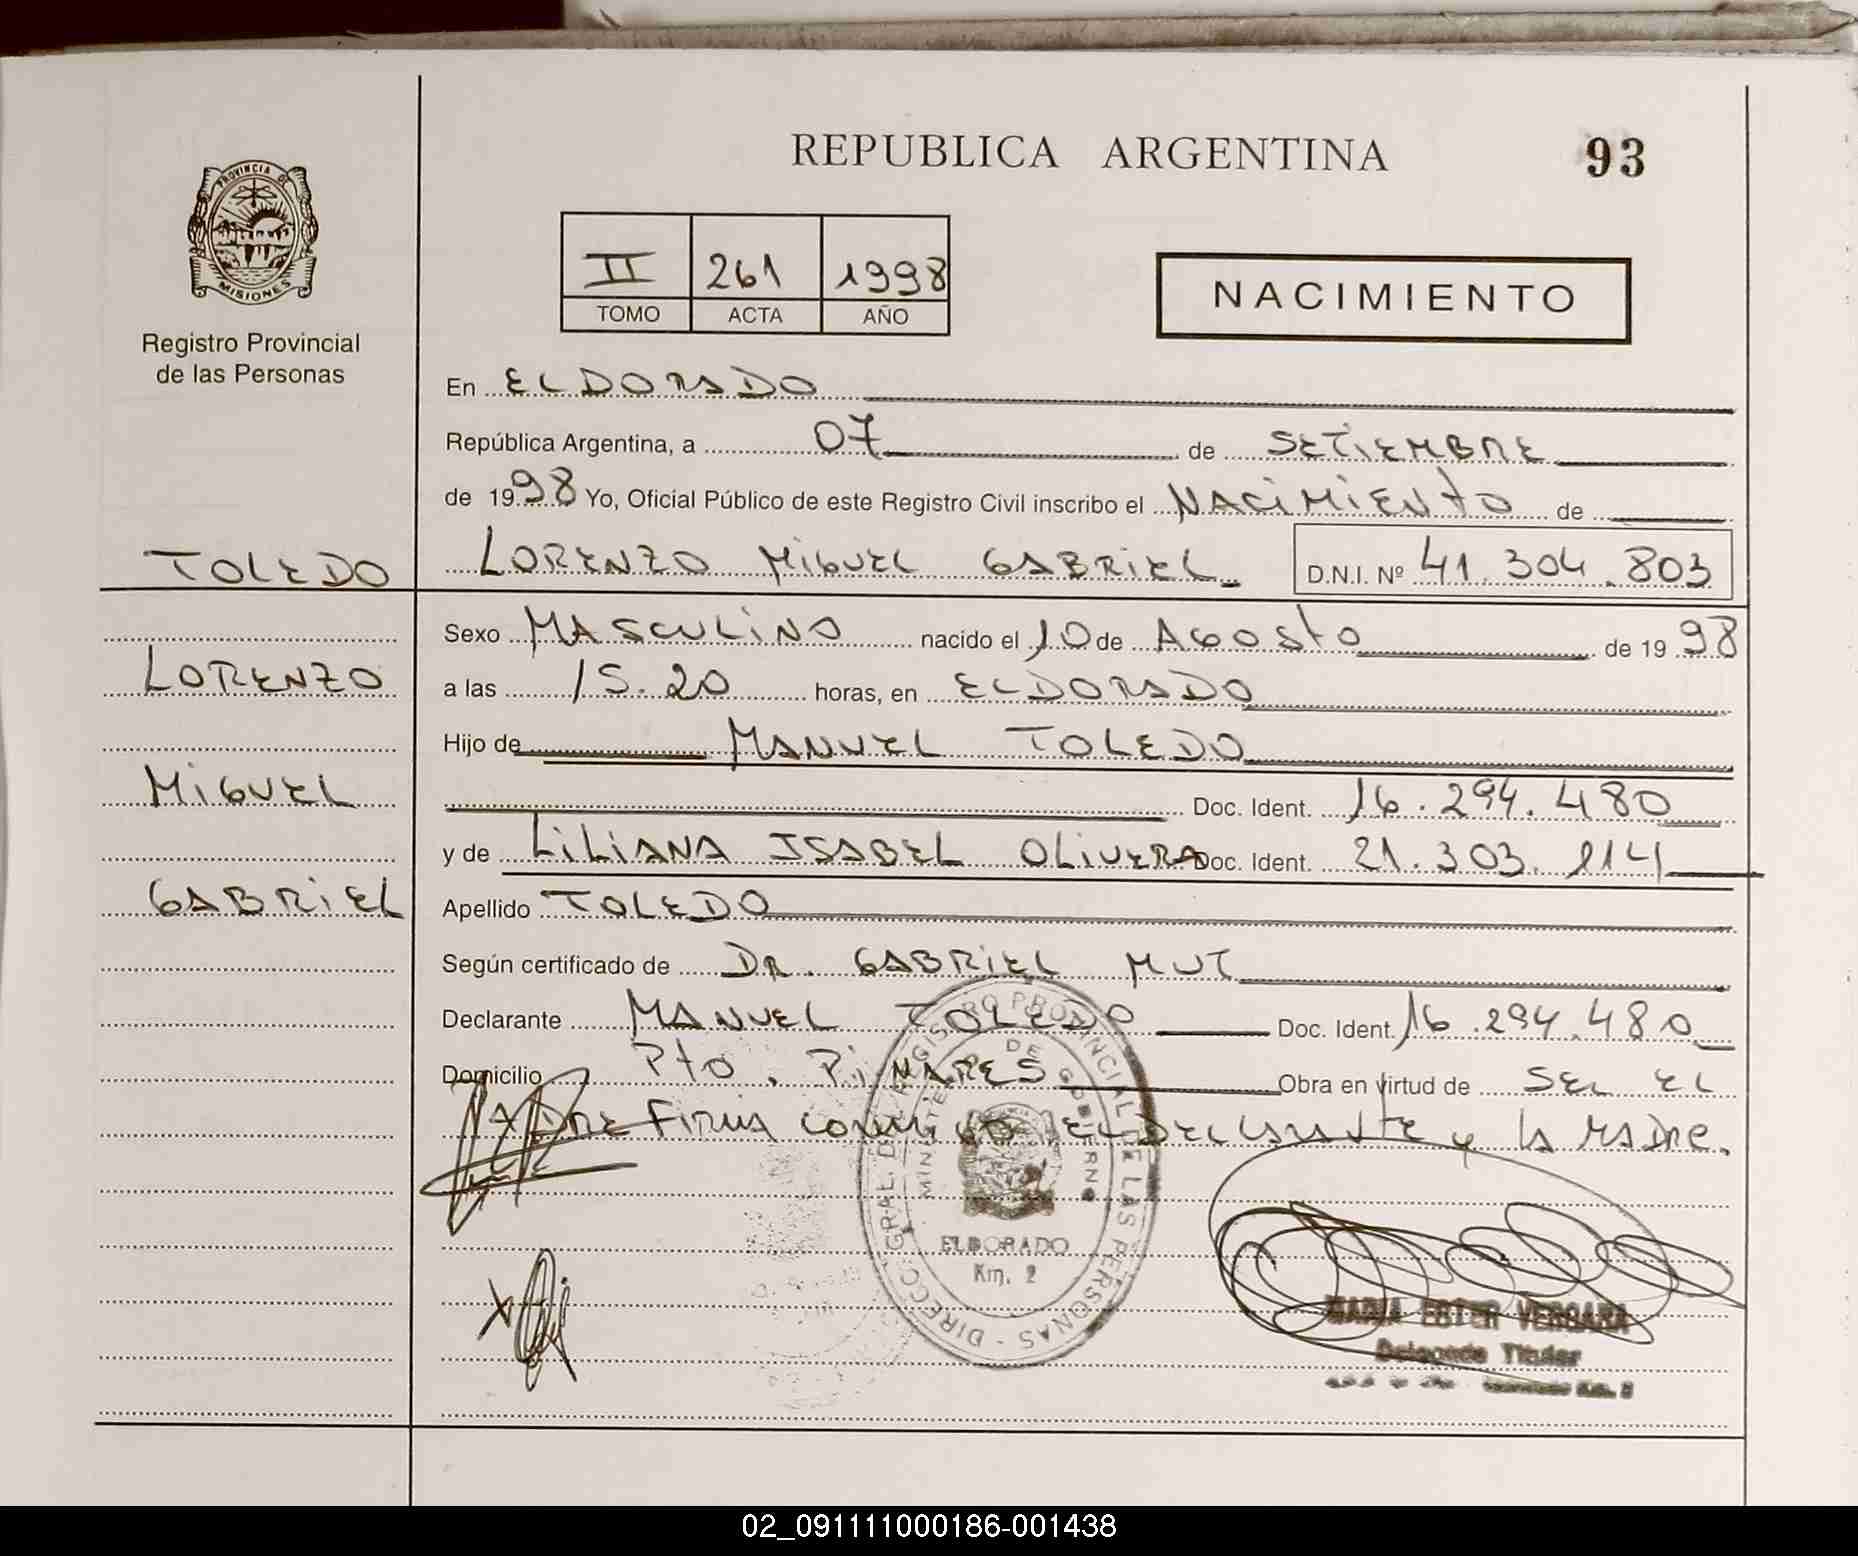 REPUBLICA ARGENTINA
93
PROVINCIA DE
MISIONES
Registro Provincial
de las Personas
II 261 1998
TOMO ACTA AÑO
NACIMIENTO
En ELDORADO
República Argentina, a 07 de SETIEMBRE
de 1998 Yo, Oficial Público de este Registro Civil inscribo el NACIMIENTO de
TOLEDO
LORENZO MIGUEL GABRIEL D.N.I. Nº 41.304.803
Sexo MASCULINO nacido el 10 de AGOSTO de 1998
LORENZO
a las 15.20 horas, en ELDORADO
Hijo de MANUEL TOLEDO
MIGUEL
Doc. Ident. 16.294.480
y de LILIANA ISABEL OLIVERA Doc. Ident. 21.303.114
GABRIEL
Apellido TOLEDO
Según certificado de DR. GABRIEL MUT
Declarante MANUEL TOLEDO Doc. Ident. 16.294.480
Domicilio Pto. PINARES Obra en virtud de SER EL
PADRE FIRMA CONMIGO EL DECLARANTE y LA MADRE.
DIRECC. GRAL. DEL REGISTRO PROVINCIAL DE LAS PERSONAS
MINISTERIO DE GOBIERNO
ELDORADO
Km. 2
MARIA ESTER VERGARA
Delegada Titular
02_091111000186-001438